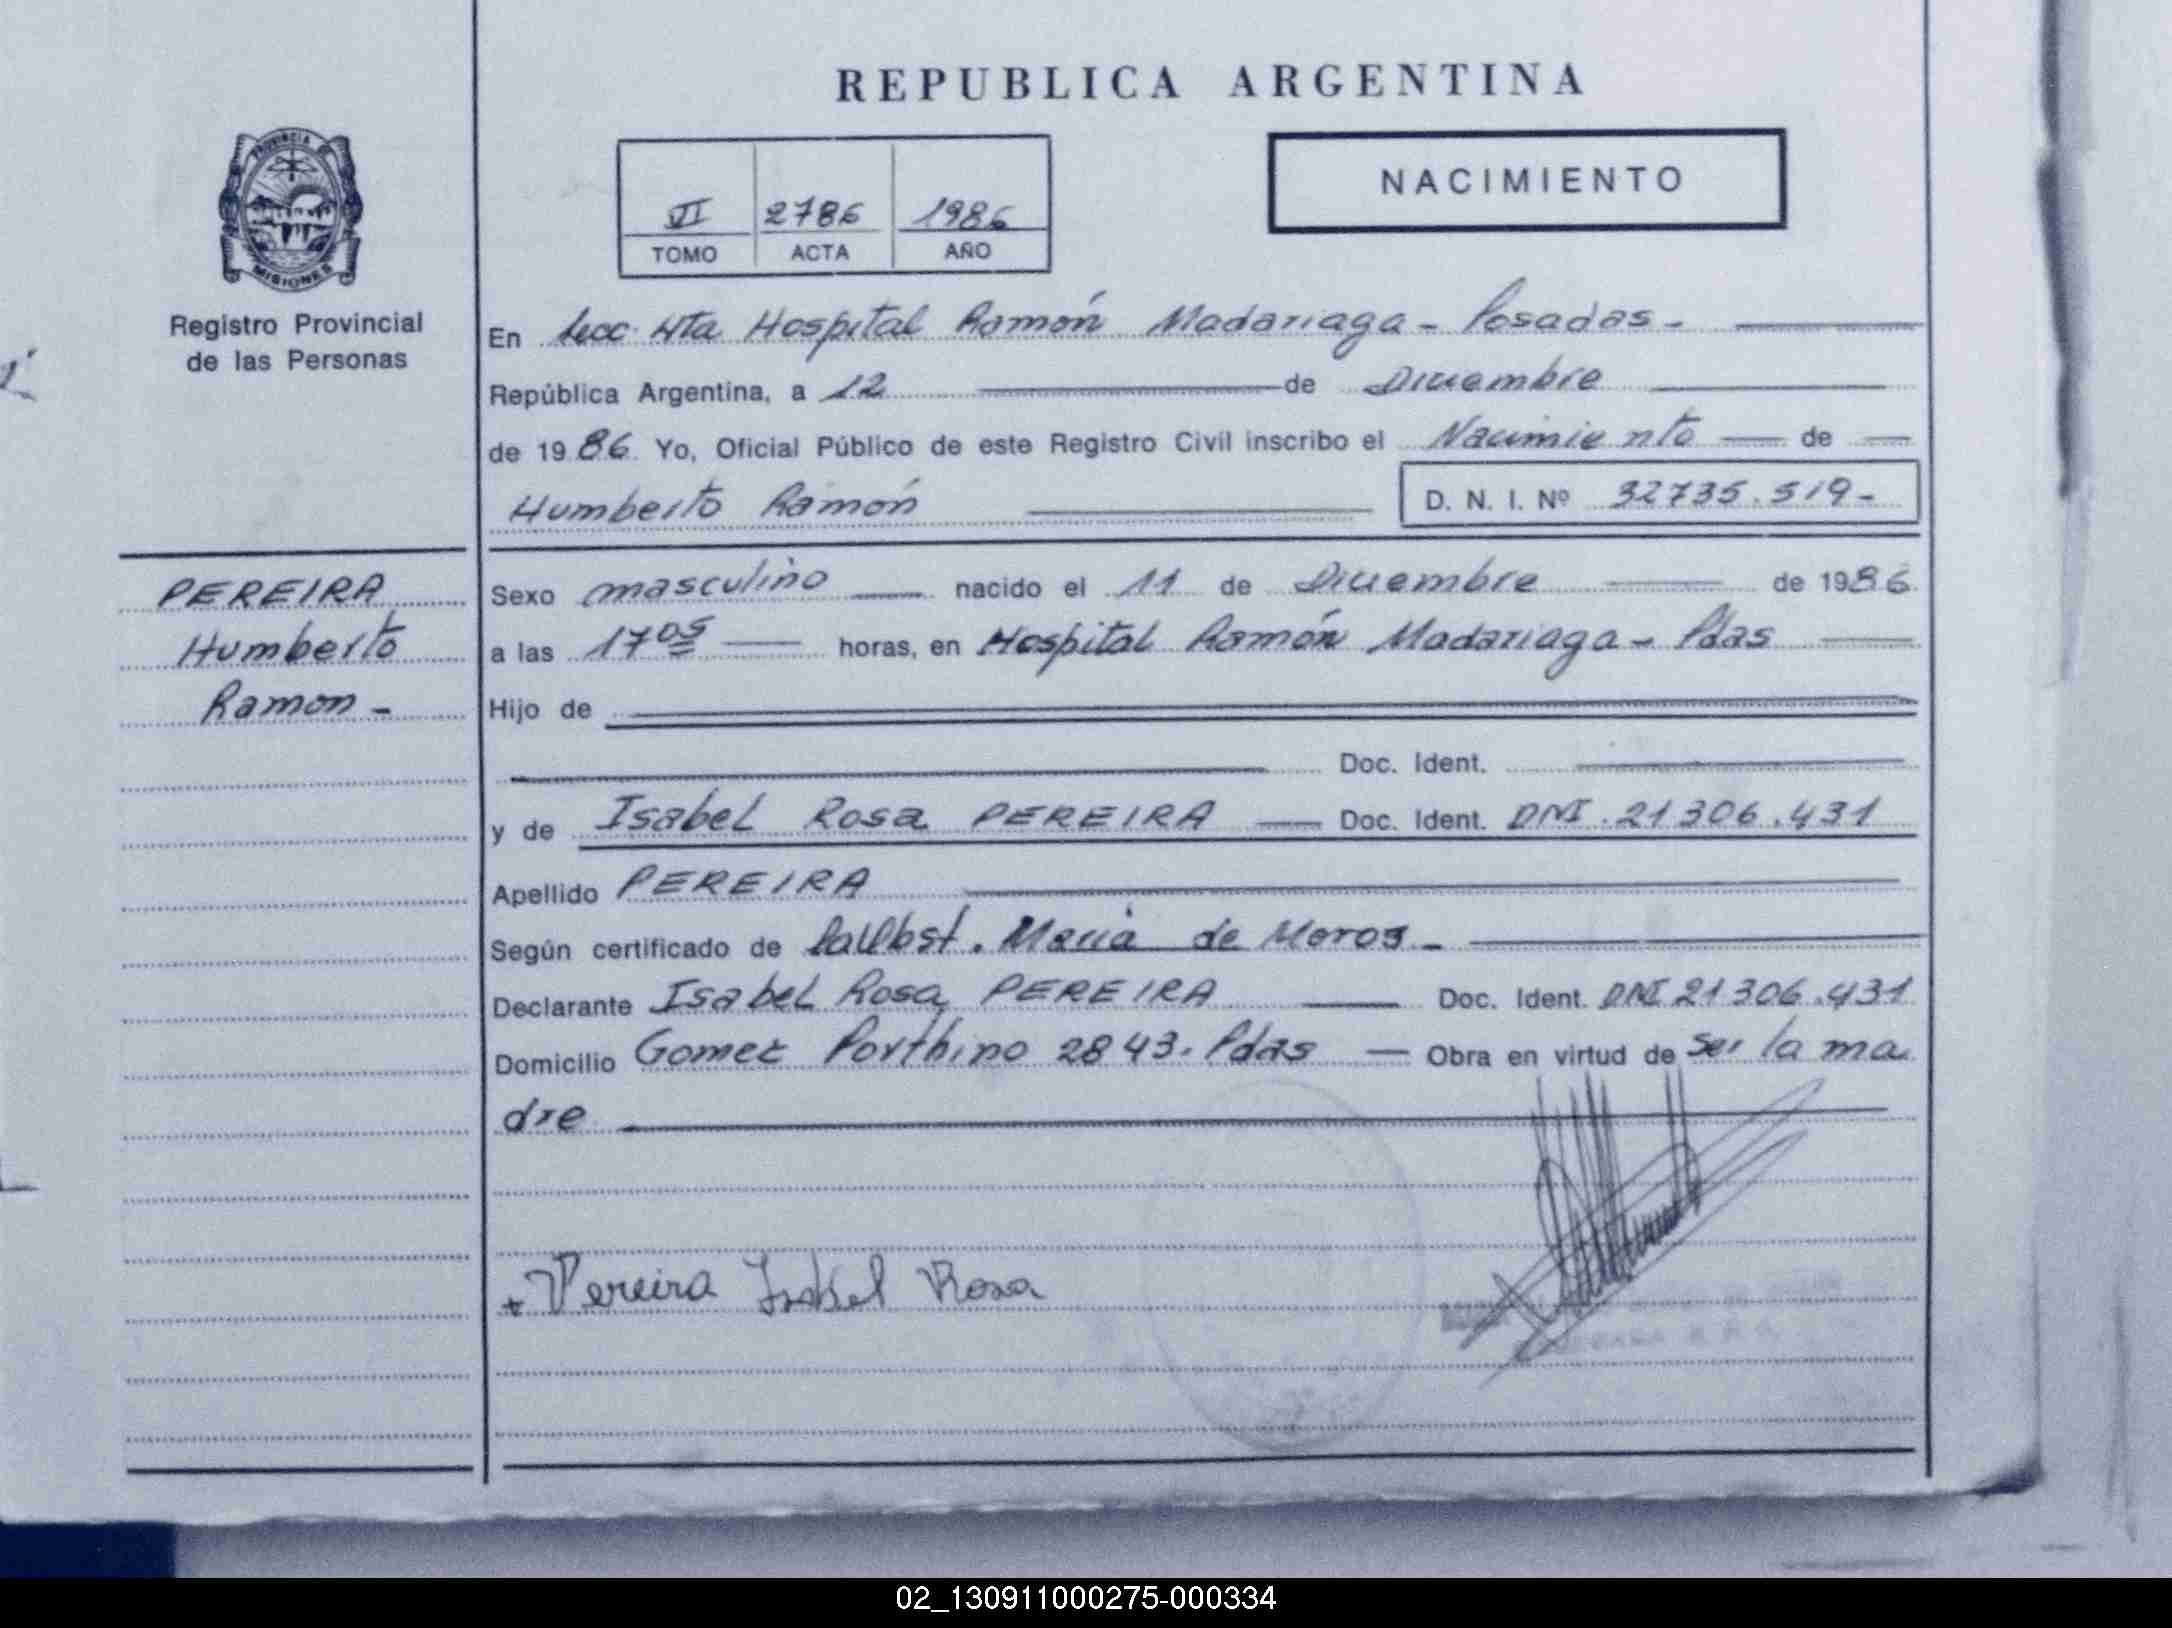 REPUBLICA ARGENTINA
PROVINCIA
MISIONES
Registro Provincial
de las Personas
VI 2786 1986
TOMO ACTA AÑO
NACIMIENTO
En Secc. 4ta Hospital Ramón Madariaga - Posadas -
República Argentina, a 12 de Diciembre
de 1986 Yo, Oficial Público de este Registro Civil inscribo el Nacimiento de
Humberto Ramón D. N. I. Nº 32735.519-
PEREIRA
Humberto
Ramon -
Sexo masculino nacido el 11 de Diciembre de 1986
a las 17 05 horas, en Hospital Ramón Madariaga - Pdas
Hijo de
Doc. Ident.
y de Isabel Rosa PEREIRA Doc. Ident. DNI. 21306.431
Apellido PEREIRA
Según certificado de María de Moros -
Declarante Isabel Rosa PEREIRA Doc. Ident. DNI 21306.431
Domicilio Gomez Porthino 2843. Pdas Obra en virtud de ser la ma
dre
+ Pereira Isabel Rosa
02_130911000275-000334